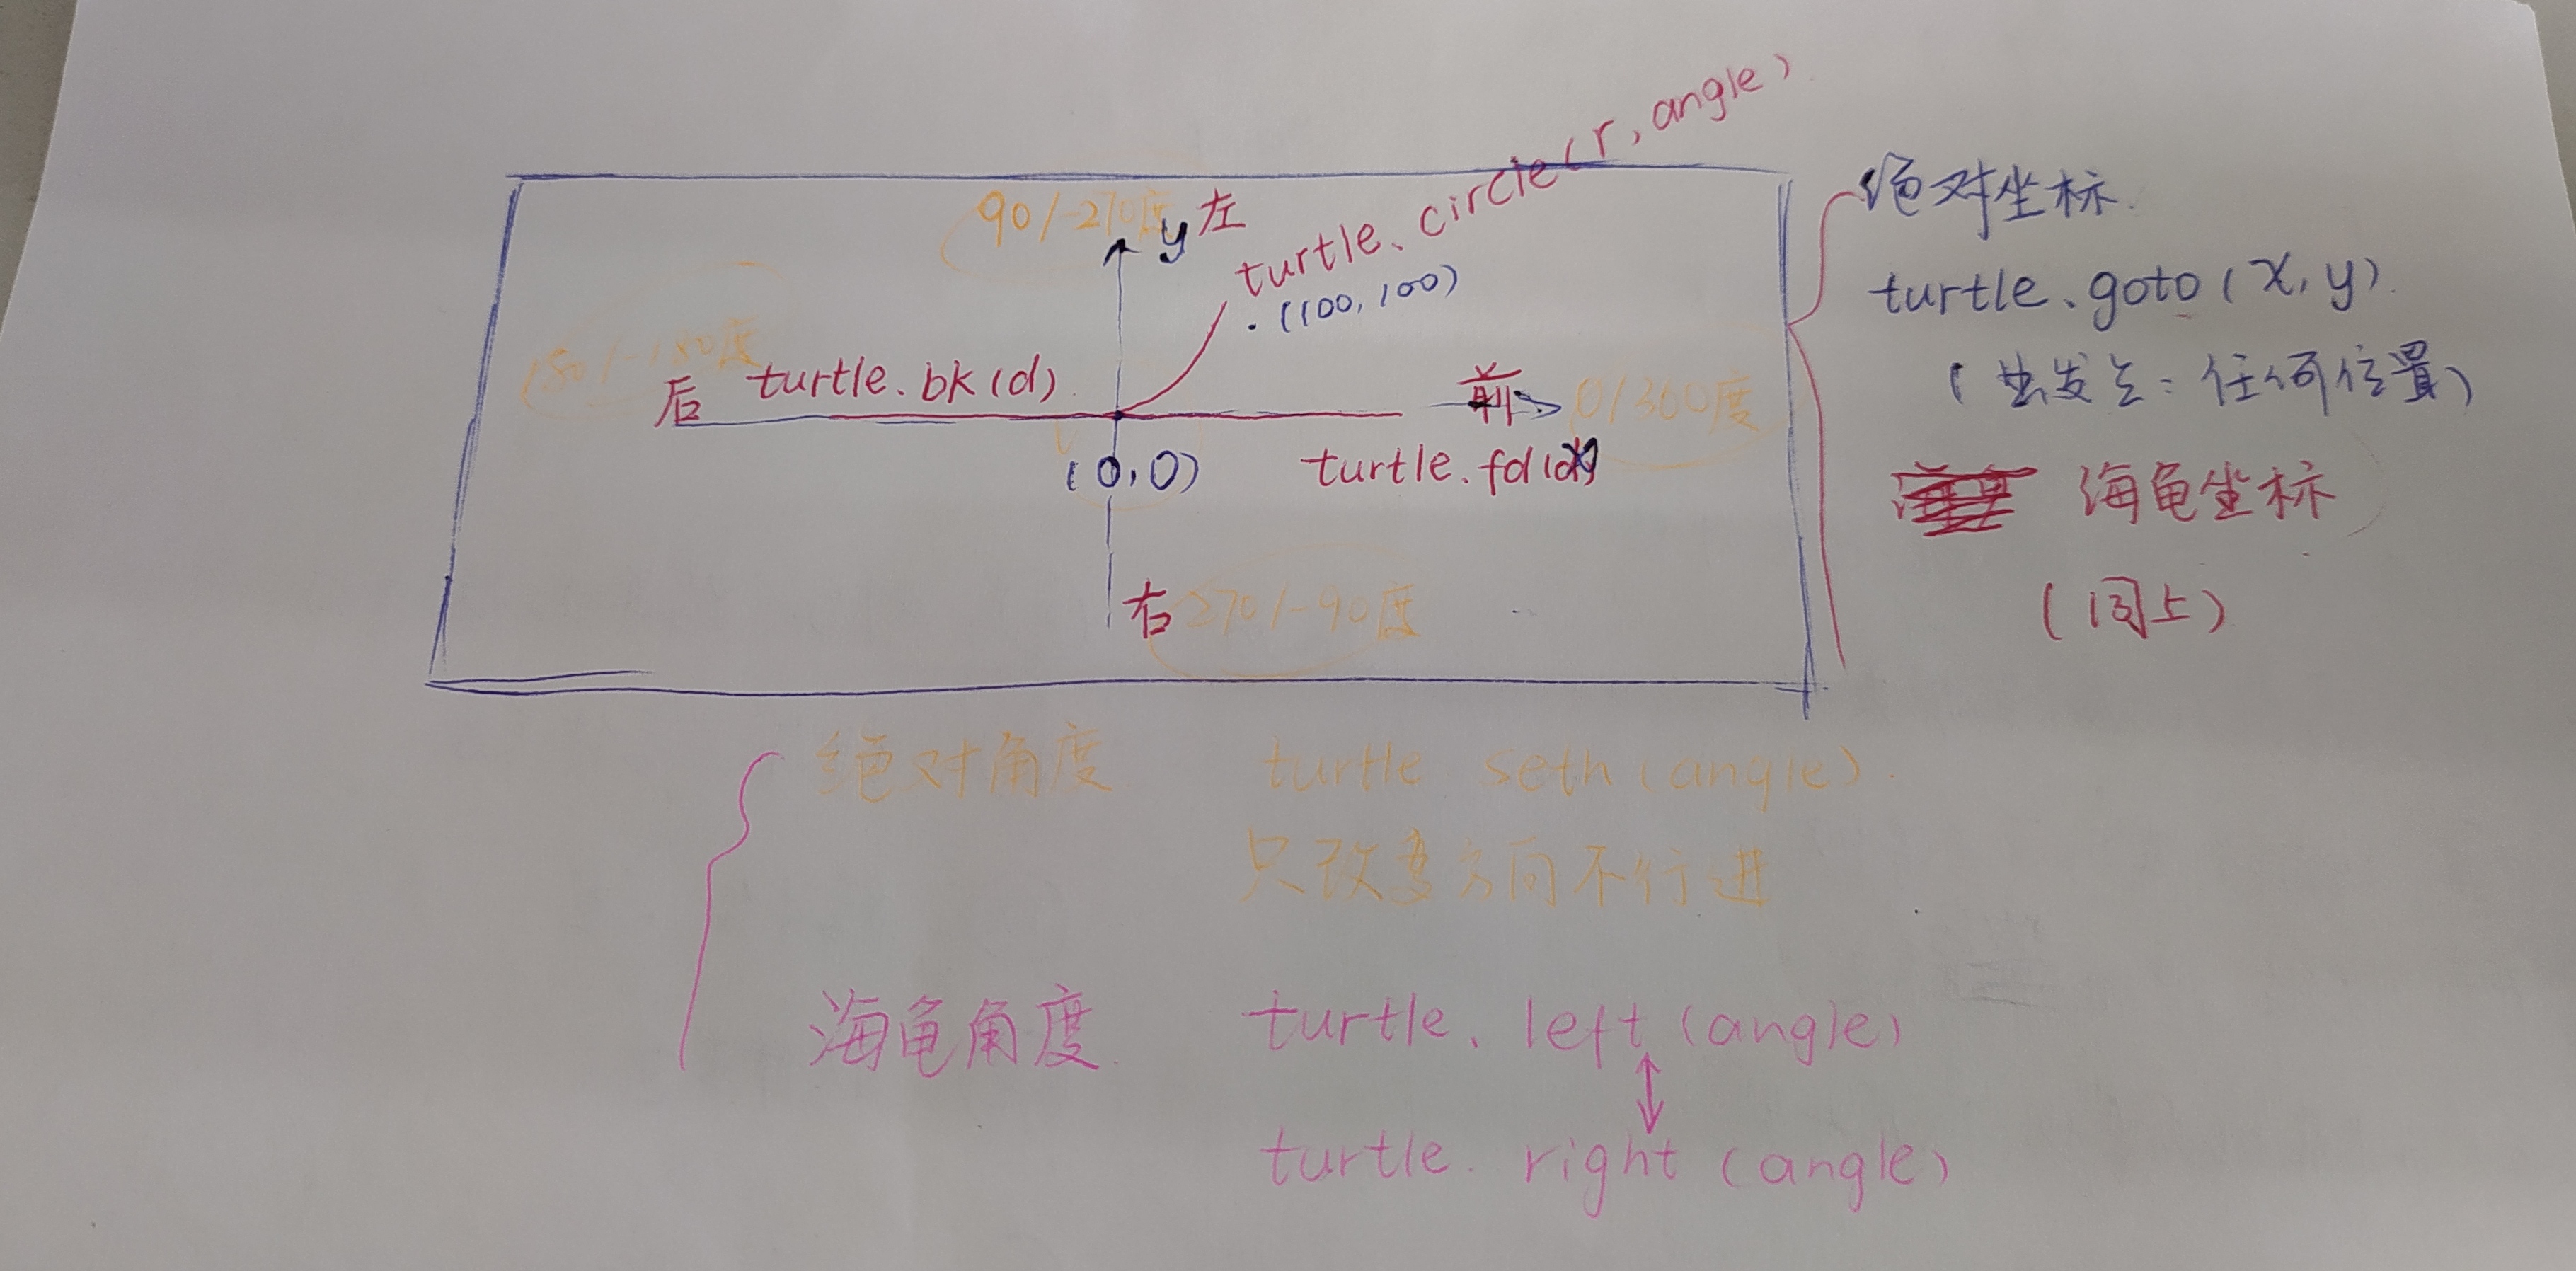 turtle.circle(r, angle)
90/-270度
y 左
.(100,100)
180/-180度
后 turtle.bk(d)
前
0/360度
(0,0)
turtle.fd(d)
右 270/-90度
绝对坐标
turtle.goto(x,y)
(出发点:任何位置)
海龟坐标
(同上)
绝对角度 turtle seth(angle).
只改变方向不行进
海龟角度 turtle.left(angle)
turtle.right(angle)